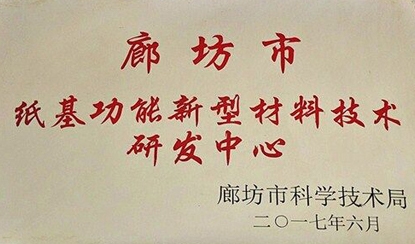 廊坊市
纸基功能新型材料技术
研发中心
廊坊市科学技术局
二〇一七年六月